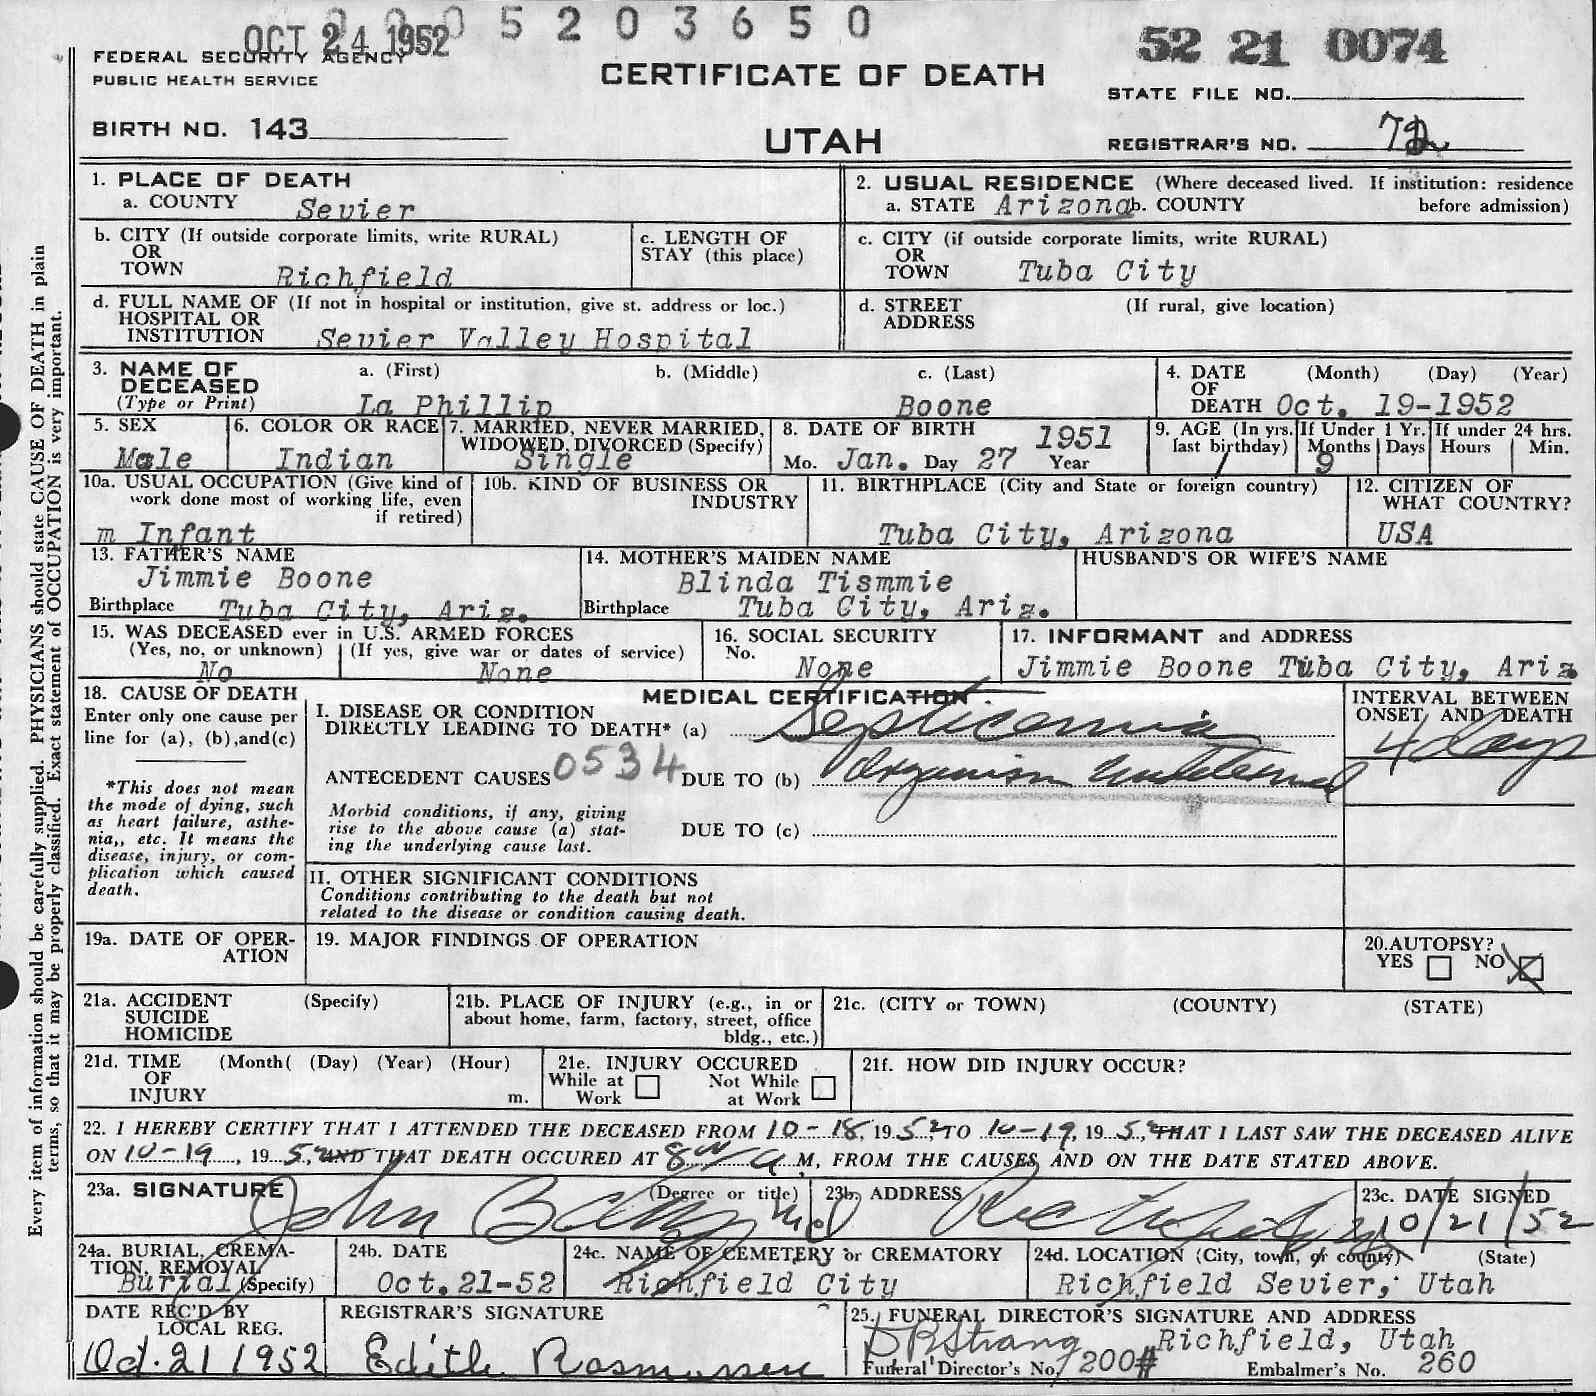 OCT 24 1952
0005203650
52 21 0074
FEDERAL SECURITY AGENCY
PUBLIC HEALTH SERVICE
CERTIFICATE OF DEATH
STATE FILE NO.
BIRTH NO. 143
UTAH
REGISTRAR'S NO. 72
1. PLACE OF DEATH
a. COUNTY Sevier
2. USUAL RESIDENCE (Where deceased lived. If institution: residence before admission)
a. STATE Arizona b. COUNTY
b. CITY (If outside corporate limits, write RURAL)
OR
TOWN Richfield
c. LENGTH OF
STAY (this place)
c. CITY (if outside corporate limits, write RURAL)
OR
TOWN Tuba City
d. FULL NAME OF (If not in hospital or institution, give st. address or loc.)
HOSPITAL OR
INSTITUTION Sevier Valley Hospital
d. STREET (If rural, give location)
ADDRESS
3. NAME OF
DECEASED
(Type or Print)
a. (First) b. (Middle) c. (Last)
La Phillip Boone
4. DATE (Month) (Day) (Year)
OF
DEATH Oct. 19-1952
5. SEX
Male
6. COLOR OR RACE
Indian
7. MARRIED, NEVER MARRIED,
WIDOWED, DIVORCED (Specify)
Single
8. DATE OF BIRTH 1951
Mo. Jan. Day 27 Year
9. AGE (In yrs. last birthday) 1
If Under 1 Yr.
Months Days
9
If under 24 hrs.
Hours Min.
10a. USUAL OCCUPATION (Give kind of
work done most of working life, even
if retired)
m Infant
10b. KIND OF BUSINESS OR
INDUSTRY
11. BIRTHPLACE (City and State or foreign country)
Tuba City, Arizona
12. CITIZEN OF
WHAT COUNTRY?
USA
13. FATHER'S NAME
Jimmie Boone
Birthplace Tuba City, Ariz.
14. MOTHER'S MAIDEN NAME
Blinda Tismmie
Birthplace Tuba City, Ariz.
HUSBAND'S OR WIFE'S NAME
15. WAS DECEASED ever in U.S. ARMED FORCES
(Yes, no, or unknown) (If yes, give war or dates of service)
No None
16. SOCIAL SECURITY
No. None
17. INFORMANT and ADDRESS
Jimmie Boone Tuba City, Ariz
18. CAUSE OF DEATH
Enter only one cause per
line for (a), (b),and(c)
*This does not mean
the mode of dying, such
as heart failure, asthe-
nia,, etc. It means the
disease, injury, or com-
plication which caused
death.
MEDICAL CERTIFICATION
I. DISEASE OR CONDITION
DIRECTLY LEADING TO DEATH* (a) Septicemia
ANTECEDENT CAUSES 0534 DUE TO (b) Organism undetermed
Morbid conditions, if any, giving
rise to the above cause (a) stat-
ing the underlying cause last.
DUE TO (c)
II. OTHER SIGNIFICANT CONDITIONS
Conditions contributing to the death but not
related to the disease or condition causing death.
INTERVAL BETWEEN
ONSET AND DEATH
4 days
19a. DATE OF OPER-
ATION
19. MAJOR FINDINGS OF OPERATION
20.AUTOPSY?
YES NO X
21a. ACCIDENT (Specify)
SUICIDE
HOMICIDE
21b. PLACE OF INJURY (e.g., in or
about home, farm, factory, street, office
bldg., etc.)
21c. (CITY or TOWN) (COUNTY) (STATE)
21d. TIME (Month( (Day) (Year) (Hour)
OF
INJURY m.
21e. INJURY OCCURED
While at Work Not While at Work
21f. HOW DID INJURY OCCUR?
22. I HEREBY CERTIFY THAT I ATTENDED THE DECEASED FROM 10-18, 1952, TO 10-19, 1952, THAT I LAST SAW THE DECEASED ALIVE
ON 10-19, 1952, AND THAT DEATH OCCURED AT 8 A M, FROM THE CAUSES AND ON THE DATE STATED ABOVE.
23a. SIGNATURE (Degree or title)
John MD
23b. ADDRESS
Richfield
23c. DATE SIGNED
10/21/52
24a. BURIAL, CREMA-
TION, REMOVAL
Burial (Specify)
24b. DATE
Oct.21-52
24c. NAME OF CEMETERY or CREMATORY
Richfield City
24d. LOCATION (City, town, or county) (State)
Richfield Sevier, Utah
DATE REC'D BY
LOCAL REG.
Oct. 21 1952
REGISTRAR'S SIGNATURE
Edith Rasmussen
25. FUNERAL DIRECTOR'S SIGNATURE AND ADDRESS
Strang Richfield, Utah
Funeral Director's No. 200# Embalmer's No. 260
Every item of information should be carefully supplied. PHYSICIANS should state CAUSE OF DEATH in plain
terms, so that it may be properly classified. Exact statement of OCCUPATION is very important.